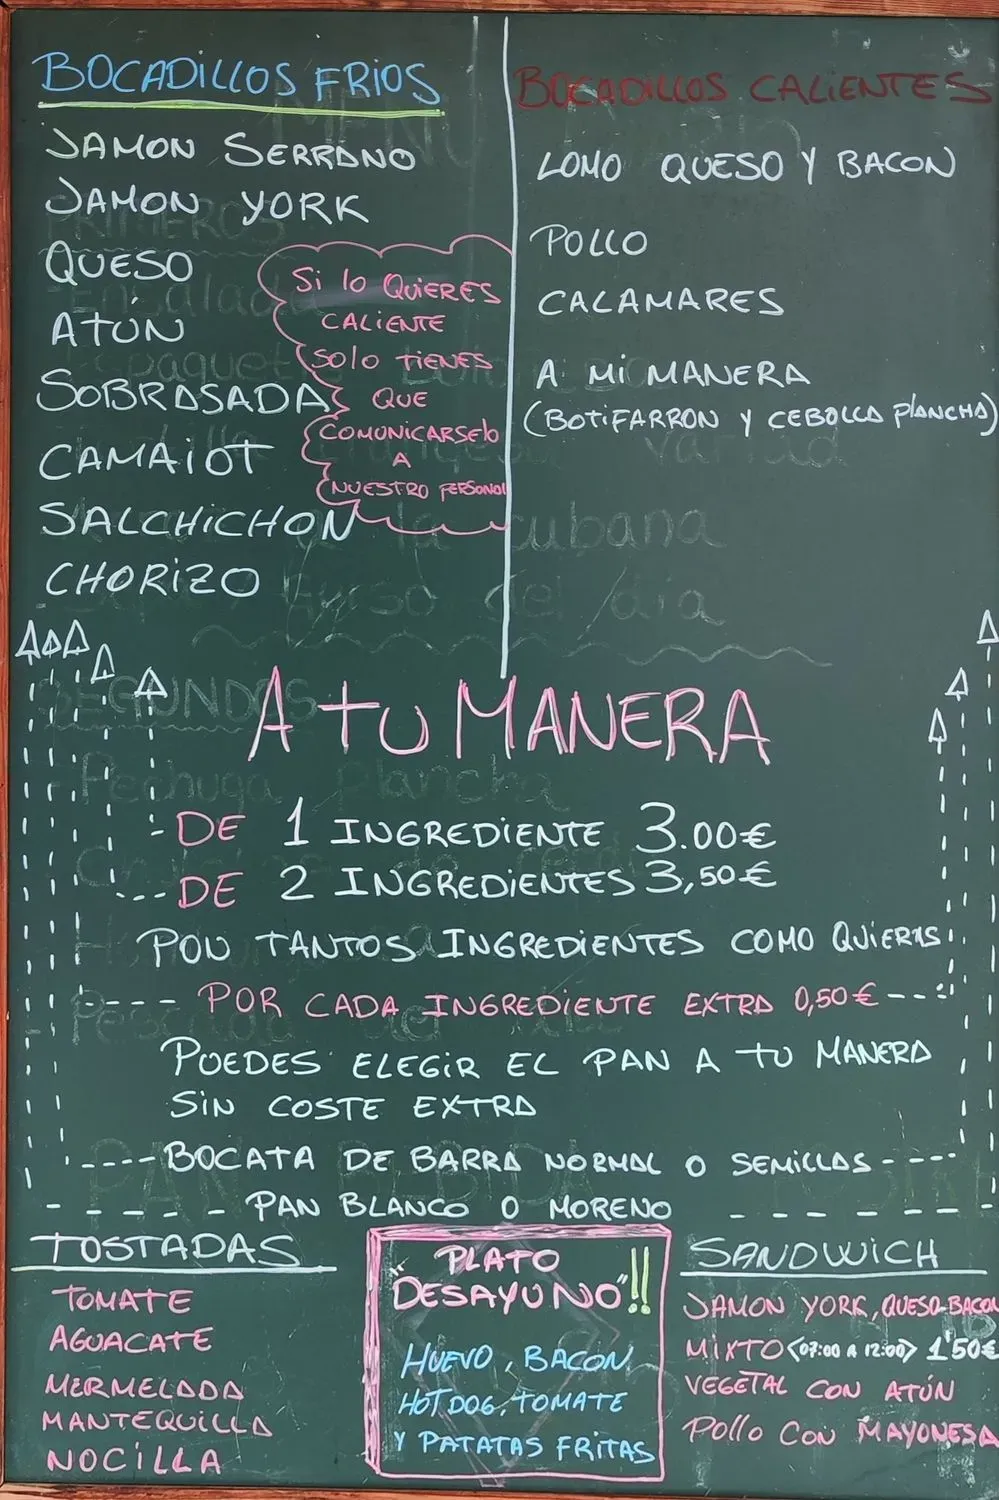 BOCADILLOS FRIOS
JAMON SERRANO
JAMON YORK
QUESO
ATÚN
SOBRASADA
CAMAIOT
SALCHICHON
CHORIZO
Si lo QUIERES
CALIENTE
SOLO TIENES
QUE
COMUNICARSElo
A
NUESTRO PERSONAL
BOCADILLOS CALIENTES
LOMO QUESO Y BACON
POLLO
CALAMARES
A MI MANERA
(BOTIFARRON Y CEBOLLA PLANCHA)
A TU MANERA
- DE 1 INGREDIENTE 3.00€
- DE 2 INGREDIENTES 3,50€
PON TANTOS INGREDIENTES COMO QUIERAS
POR CADA INGREDIENTE EXTRA 0,50€
PUEDES ELEGIR EL PAN A TU MANERA
SIN COSTE EXTRA
BOCATA DE BARRA NORMAL O SEMILLAS
PAN BLANCO O MORENO
TOSTADAS
TOMATE
AGUACATE
MERMELADA
MANTEQUILLA
NOCILLA
PLATO
"DESAYUNO"!!
HUEVO, BACON
HOT DOG, TOMATE
Y PATATAS FRITAS
SANDWICH
JAMON YORK, QUESO-BACON
MIXTO <07:00 A 12:00> 1'50€
VEGETAL CON ATÚN
POLLO CON MAYONESA